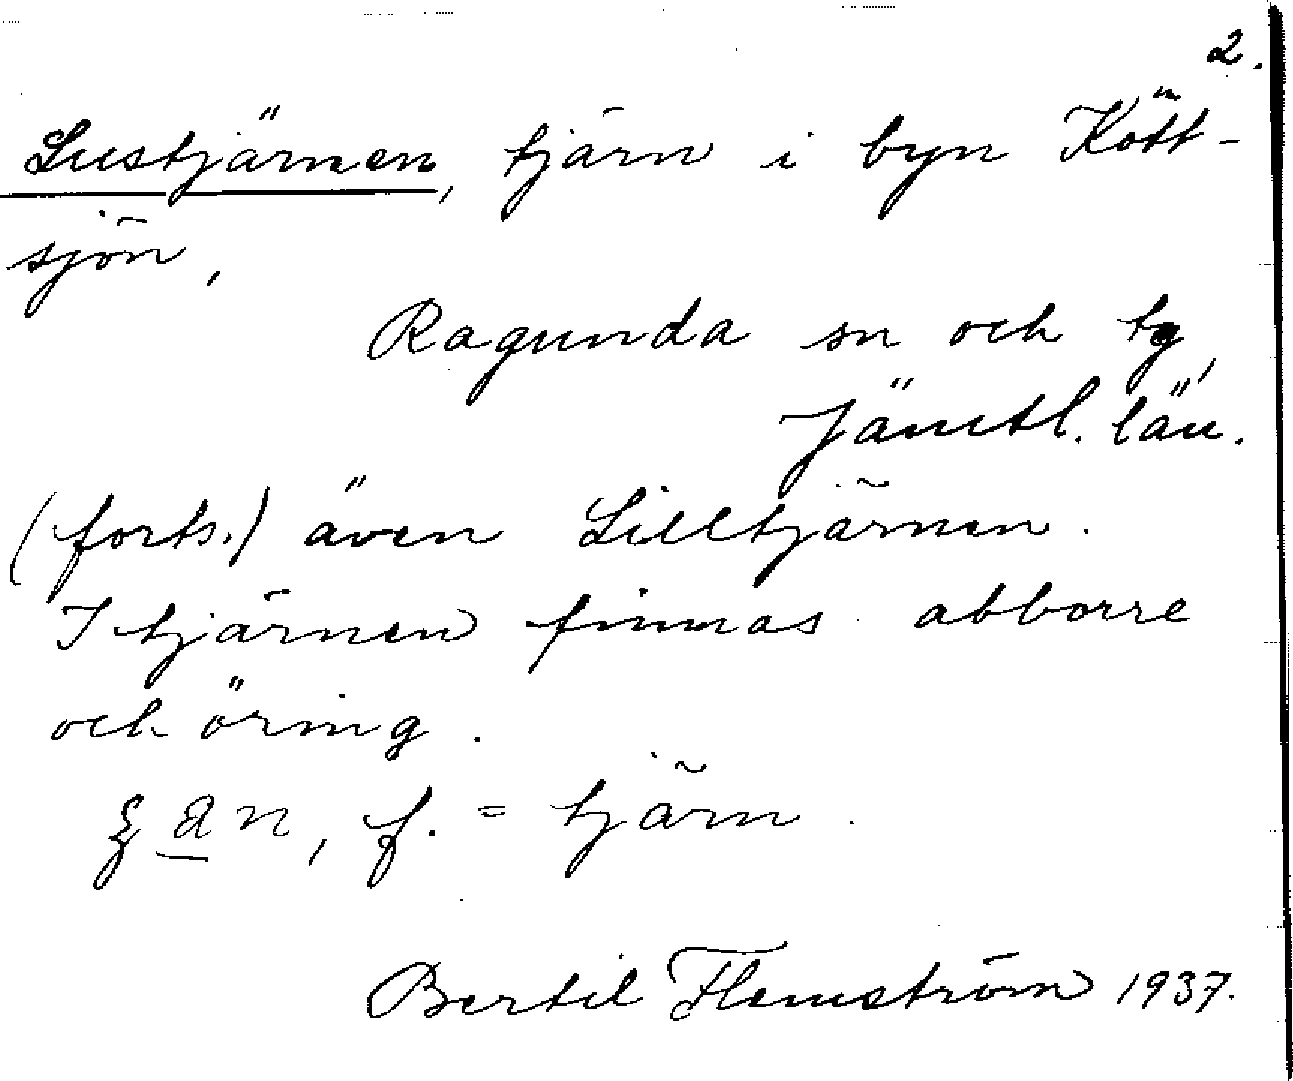 2.
Lustjärnen, tjärn i byn Kött-
sjön,
Ragunda sn och tg,
Jämtl. län.
(forts.) även Lilltjärnen.
I tjärnen finnas abborre
och öring.
f. = tjärn
Bertil Flemström 1937.